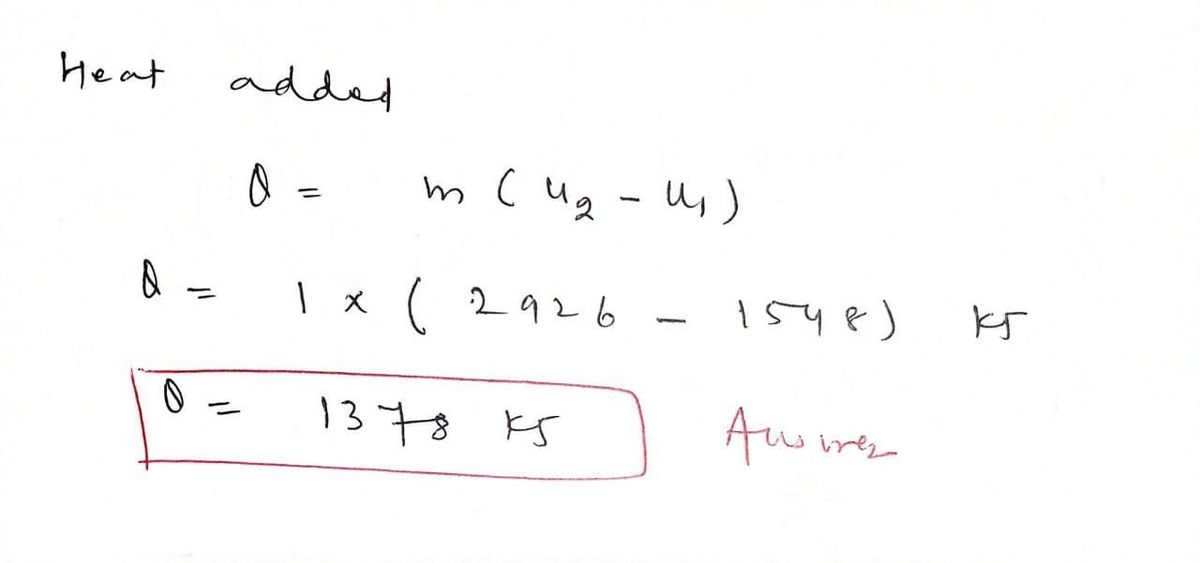 Heat added
Q = m (u2 - u1)
Q = 1 x ( 2926 - 1548) kJ
Q = 1378 kJ Answer